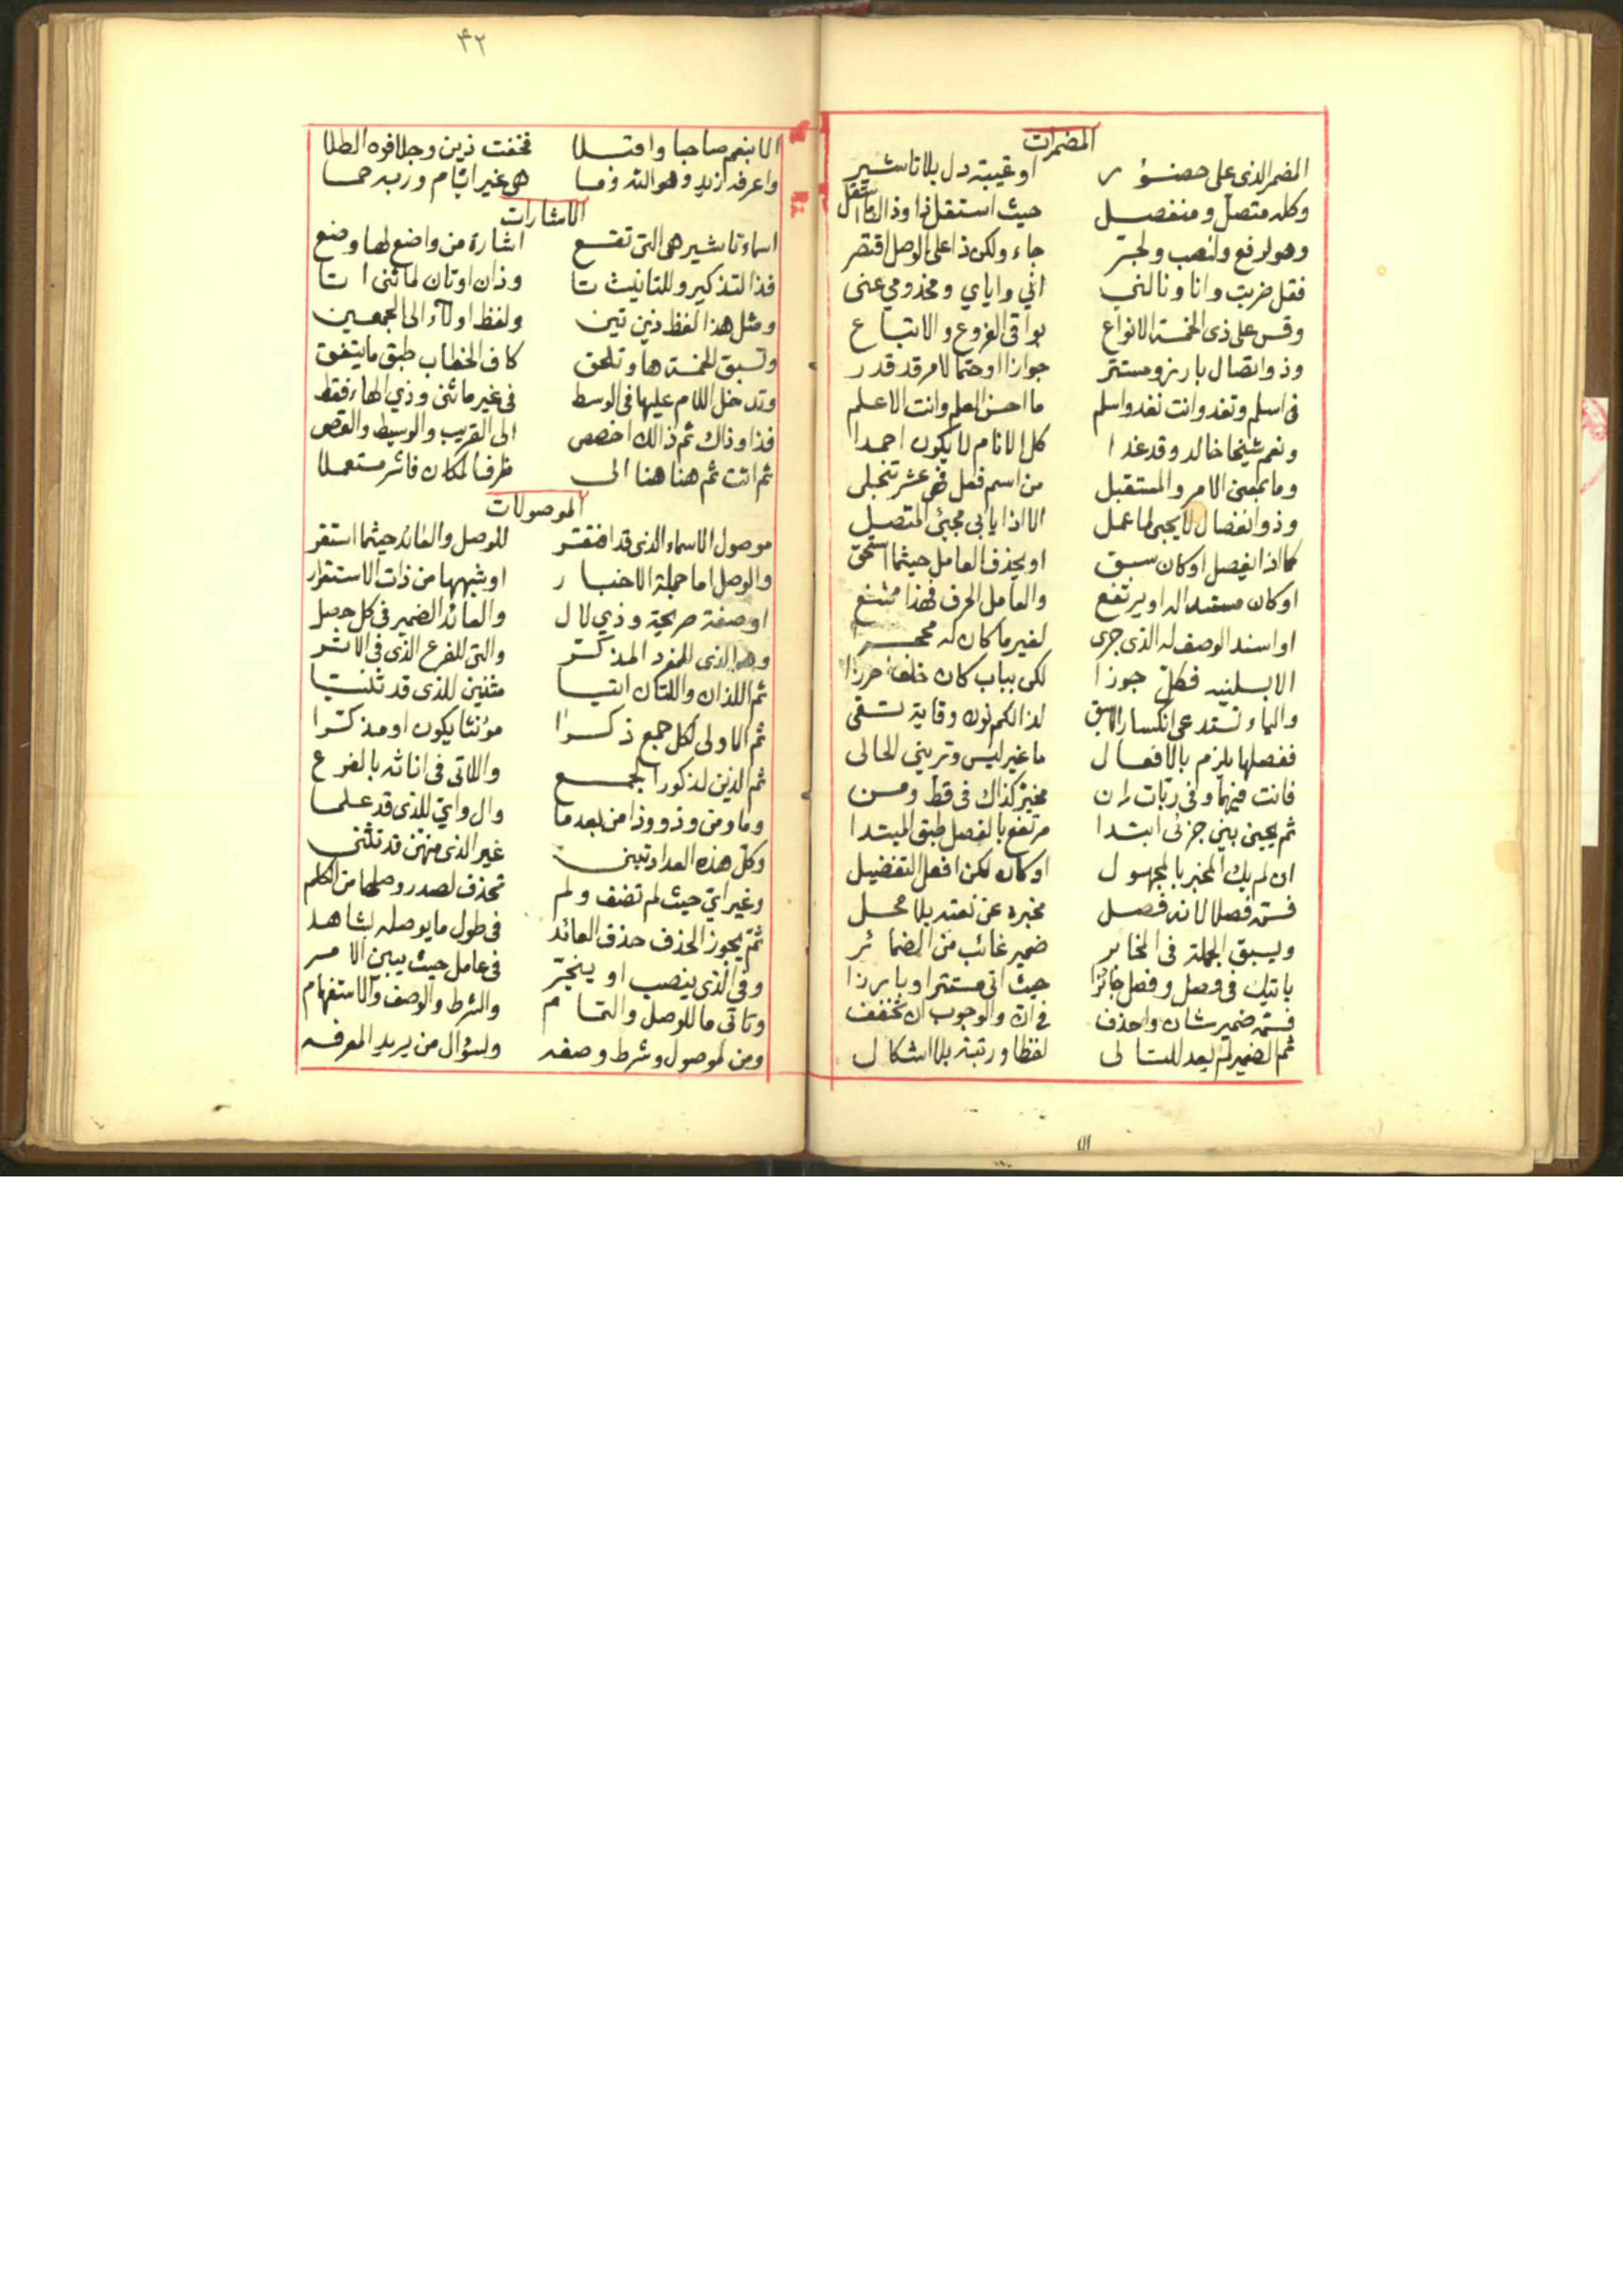 المضمرات
المضمر الذى على حضور او غيبة دل بلا تاشير
وكله متصل ومنفصل حيث استقل ذا وذا ما استقل
وهو لرفع ولنصب ولجر جاء ولكن ذا على الوصل اقتصر
فقل ضربت وانا ونالني اني واياي ومخذومي عنى
وقس على ذى الخمسة الانواع بواقى الفروع والاتباع
وذو اتصال بارز ومستتر جوازا او حتما لامر قد قدر
فى اسلم وتغد وانت نغد واسلم ما احسن العلم وانت الاعلم
ونعم شيخا خالد وقد غدا كل الانام لا يكون احمدا
وما بمعنى الامر والمستقبل من اسم فعل فهى عشر تنجلى
وذو انفصال لا يجى لما عمل الا اذا يابى مجيئ المتصل
كما اذا يفصل او كان سبق او يحذف العامل حيثما استحق
او كان مسندا اليه او يرتفع والعامل الحرف فهذا ممتنع
او اسند الوصف له الذى جرى لغير ما كان له
الا بسلنيه فكل جوزا لكن بباب كان خلف احرزا
والياء تستدعى انكسار السابق لذا لكم نون وقاية تقى
ففصلها يلزم بالافعال ما غير ليس وتريني الحالى
فانت فيهما وفى ربات ان مخير كذاك فى قط ومن
ثم يجيئ بين جزئى ابتدا مرتفع بالفصل طبق المبتدا
ان لم يك الخبر بالمجهول او كان لكن افعل التفضيل
فسمه فصلا لانه فصل مخبره عن نعته بلا محل
ويسبق الجملة فى المخابر ضمير غائب من الضمائر
ياتيك فى وصل وفصل جائزا حيث اتى مستترا او بارزا
فسمه ضمير شان واحذف فى ان والوجوب ان تخفف
ثم الضمير لم يعد للتالى لفظا ورتبة بلا اشكال
٤٢
الا بنعم صاحبا وافتلا فخفت ذين وجلا فوه الطلا
واعرفه ازيد وهو الله وما هى غير ايام وربه حما
الاشارات
اسماء تاشير هى التى تقع اشارة من واضع لها وضع
فذا لتذكير وللتانيث تا وذان او تان لما ثنى اتا
ومثل هذا لفظ ذين تين ولفظ اولاء الى الجمعين
وتسبق الخمسة ها وتلحق كاف الخطاب طبق ما يتفق
وتدخل اللام عليها فى الوسط فى غير ما ثنى وذي الهاء فقط
فذا وذاك ثم ذالك اخصص الى القريب والوسيط والقصى
ثم اتت ثم هنا هنا الى ظرف المكان فاشر مستعملا
الموصولات
موصول الاسماء الذى قد افتقر للوصل والعائد حيثما استقر
والوصل اما جملة الاخبار او شبهها من ذات الاستقرار
او صفة صريحة وذي لال والعائد الضمير فى كل حصل
وهو الذى للمفرد المذكر والتى للفرع الذى فى الاثر
ثم اللذان واللتان اتيا مثنيين للذى قد ثنيا
ثم الاولى لكل جمع ذكرا مؤنثا يكون او مذكرا
ثم الذين لذكورا لجمع واللاتى فى اناثه بالفرع
وما ومن وذو وذا من بعد ما وال واي للذى قد علما
وكل هذه العداد تبنى غير الذى منهن قد تثنى
وغير اي حيث لم تضف ولم تحذف لصدر وصلها من الكلم
ثم يجوز الحذف حذف العائد فى طول ما يوصله لشاهد
وفى الذى ينصب او ينجر فى عامل حيث يبين الامر
وتاتى ما للوصل والتمام والشرط والوصف والاستفهام
ومن لموصول وشرط وصفه ولسؤال من يريد المعرفه